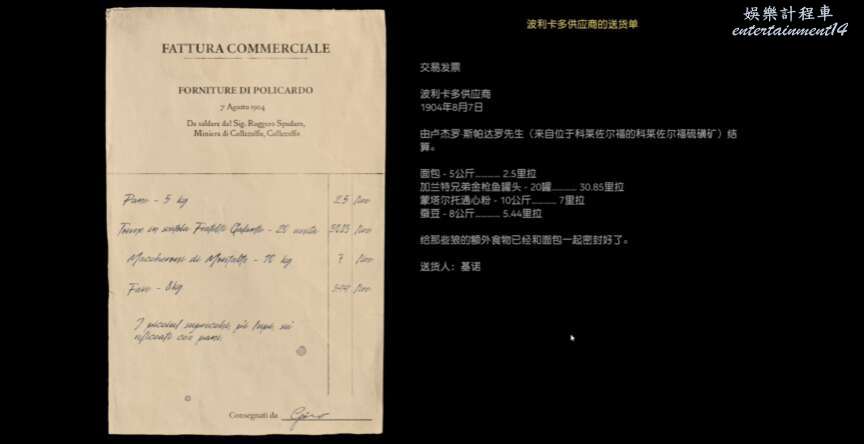 娛樂計程車
entertainment14
FATTURA COMMERCIALE
FORNITURE DI POLICARDO
7 Agosto 1904
Da saldare dal Sig. Ruggero Spadaro,
Miniera di Collezolfo, Collezolfo
Pane - 5 kg
Tonno in scatola Fratelli Galante - 20 unità
Maccheroni di Montalto - 10 kg 7
Fave - 8kg
Consegnati da Gino
波利卡多供应商的送货单
交易发票
波利卡多供应商
1904年8月7日
由卢杰罗·斯帕达罗先生（来自位于科莱佐尔福的科莱佐尔福硫磺矿）结
算。
面包 - 5公斤............ 2.5里拉
加兰特兄弟金枪鱼罐头 - 20罐............ 30.85里拉
蒙塔尔托通心粉 - 10公斤............ 7里拉
蚕豆 - 8公斤............ 5.44里拉
给那些狼的额外食物已经和面包一起密封好了。
送货人：基诺